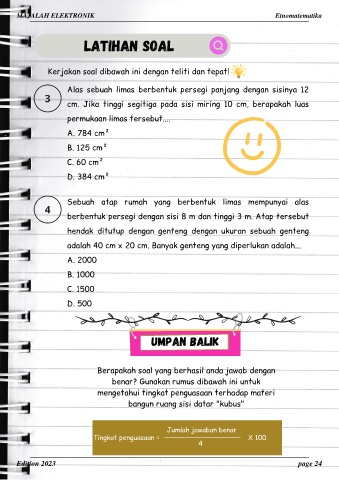 MAJALAH ELEKTRONIK
Etnomatematika
LATIHAN SOAL
Kerjakan soal dibawah ini dengan teliti dan tepat!
3
Alas sebuah limas berbentuk persegi panjang dengan sisinya 12
cm. Jika tinggi segitiga pada sisi miring 10 cm, berapakah luas
permukaan limas tersebut....
A. 784 cm²
B. 125 cm²
C. 60 cm²
D. 384 cm²
4
Sebuah atap rumah yang berbentuk limas mempunyai alas
berbentuk persegi dengan sisi 8 m dan tinggi 3 m. Atap tersebut
hendak ditutup dengan genteng dengan ukuran sebuah genteng
adalah 40 cm x 20 cm. Banyak genteng yang diperlukan adalah...
A. 2000
B. 1000
C. 1500
D. 500
UMPAN BALIK
Berapakah soal yang berhasil anda jawab dengan
benar? Gunakan rumus dibawah ini untuk
mengetahui tingkat penguasaan terhadap materi
bangun ruang sisi datar "kubus"
Jumlah jawaban benar
Tingkat penguasaan =
X 100
4
Edition 2023
page 24